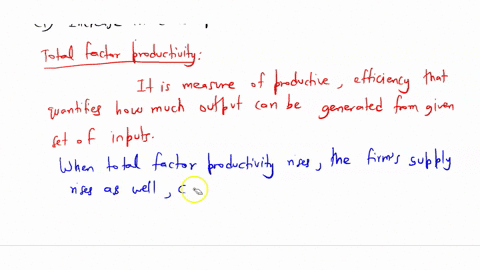 Total factor productivity:
It is measure of productive, efficiency that
quantifies how much output can be generated from given
set of inputs.
When total factor productivity rises, the firm's supply
rises as well, c